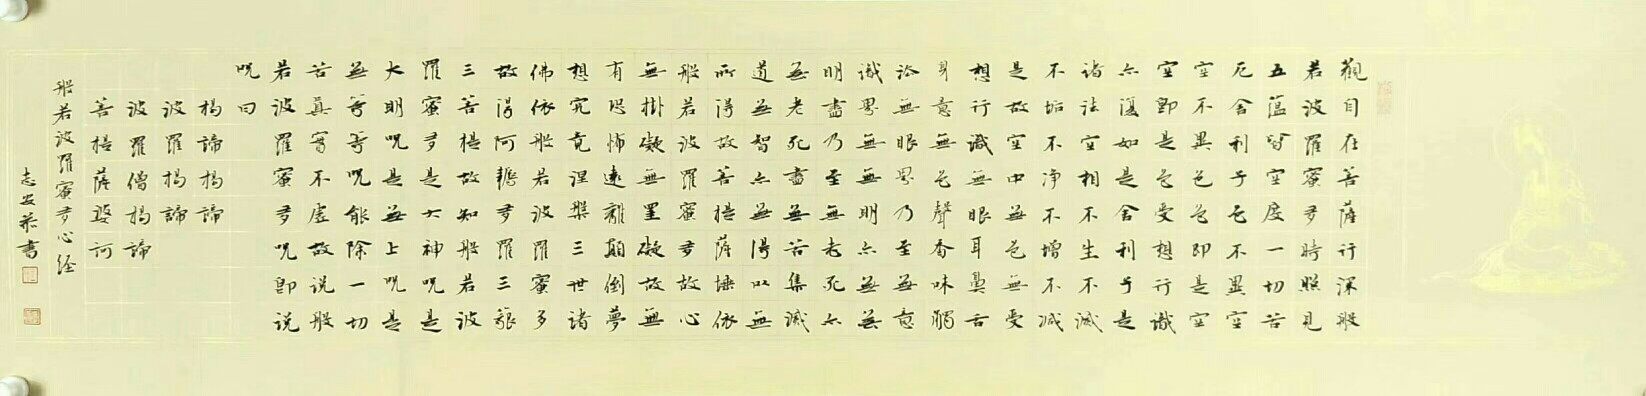 觀自在菩薩行深般
若波羅蜜多時照見
五蘊皆空度一切苦
厄舍利子色不異空
空不異色色即是空
空即是色受想行識
亦復如是舍利子是
諸法空相不生不滅
不垢不净不增不减
是故空中無色無受
想行識無眼耳鼻舌
身意無色聲香味觸
法無眼界乃至無意
識界無無明亦無無
明盡乃至無老死亦
無老死盡無苦集滅
道無智亦無得以無
所得故菩提薩埵依
般若波羅蜜多故心
無掛礙無罣礙故無
有恐怖遠離顛倒夢
想究竟涅槃三世諸
佛依般若波羅蜜多
故得阿耨多羅三藐
三菩提故知般若波
羅蜜多是大神呪是
大明呪是無上呪是
無等等呪能除一切
苦真實不虛故说般
若波羅蜜多呪即说
呪曰
揭諦揭諦
波羅揭諦
波羅僧揭諦
菩提薩婆訶
般若波羅蜜多心经
志安恭書